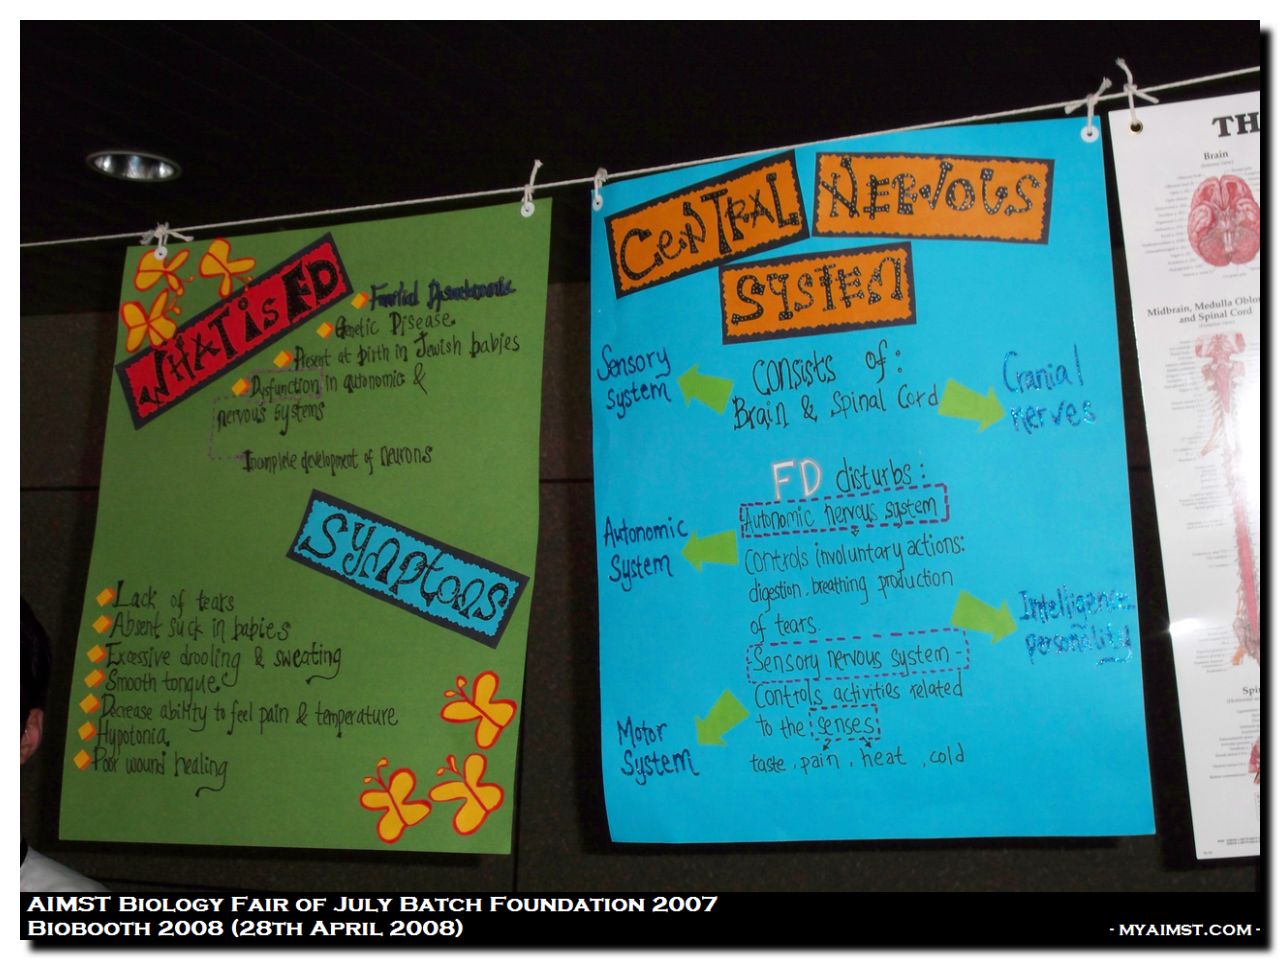 WHAT IS FD
Genetic Disease
Present at birth in Jewish babies
Dysfunction in autonomic &
nervous systems
Incomplete development of neurons
SYMPTOMS
Lack of tears
Absent suck in babies
Excessive drooling & sweating
Smooth tongue
Decrease ability to feel pain & temperature
Hypotonia
Poor wound healing
CENTRAL NERVOUS
SYSTEM
Sensory
system
Consists of:
Brain & Spinal Cord
Cranial
nerves
FD disturbs:
Autonomic nervous system
Autonomic
System
Controls involuntary actions:
digestion, breathing production
of tears.
Intelligence
personality
-Sensory nervous system-
Controls activities related
To the senses
Motor
System
taste, pain, heat, cold
TH
Brain
Midbrain, Medulla Oblon
and Spinal Cord
Spi
AIMST BIOLOGY FAIR OF JULY BATCH FOUNDATION 2007
BIOBOOTH 2008 (28TH APRIL 2008)
- MYAIMST.COM -